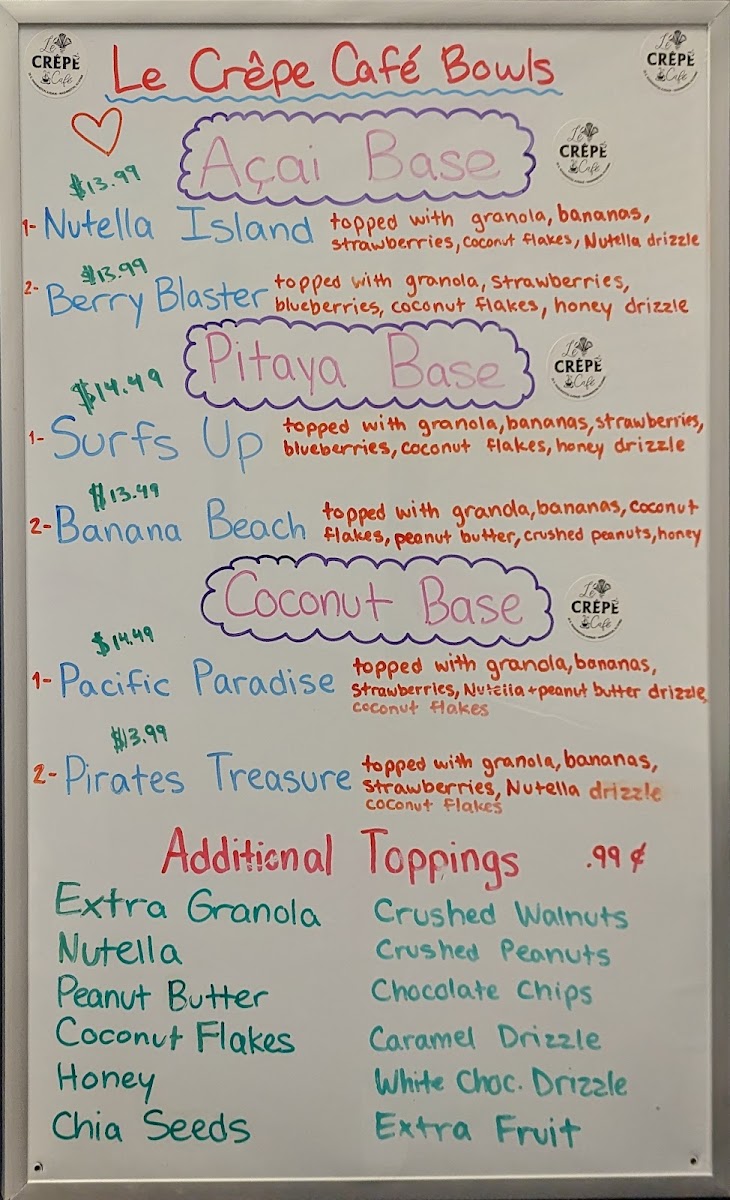 Le CRÊPE Café
Le Crêpe Café Bowls
Le CRÊPE Café
Açai Base
Le CRÊPE Café
$13.99
1- Nutella Island topped with granola, bananas,
strawberries, coconut flakes, Nutella drizzle
$13.99
2- Berry Blaster topped with granola, strawberries,
blueberries, coconut flakes, honey drizzle
Pitaya Base
Le CRÊPE Café
$14.49
1- Surfs Up topped with granola, bananas, strawberries,
blueberries, coconut flakes, honey drizzle
$13.49
2- Banana Beach topped with granola, bananas, coconut
flakes, peanut butter, crushed peanuts, honey
Coconut Base
Le CRÊPE Café
$14.49
1- Pacific Paradise topped with granola, bananas,
strawberries, Nutella + peanut butter drizzle,
coconut flakes
$13.99
2- Pirates Treasure topped with granola, bananas,
strawberries, Nutella drizzle
coconut flakes
Additional Toppings .99 ¢
Extra Granola
Nutella
Peanut Butter
Coconut Flakes
Honey
Chia Seeds
Crushed Walnuts
Crushed Peanuts
Chocolate Chips
Caramel Drizzle
White Choc. Drizzle
Extra Fruit